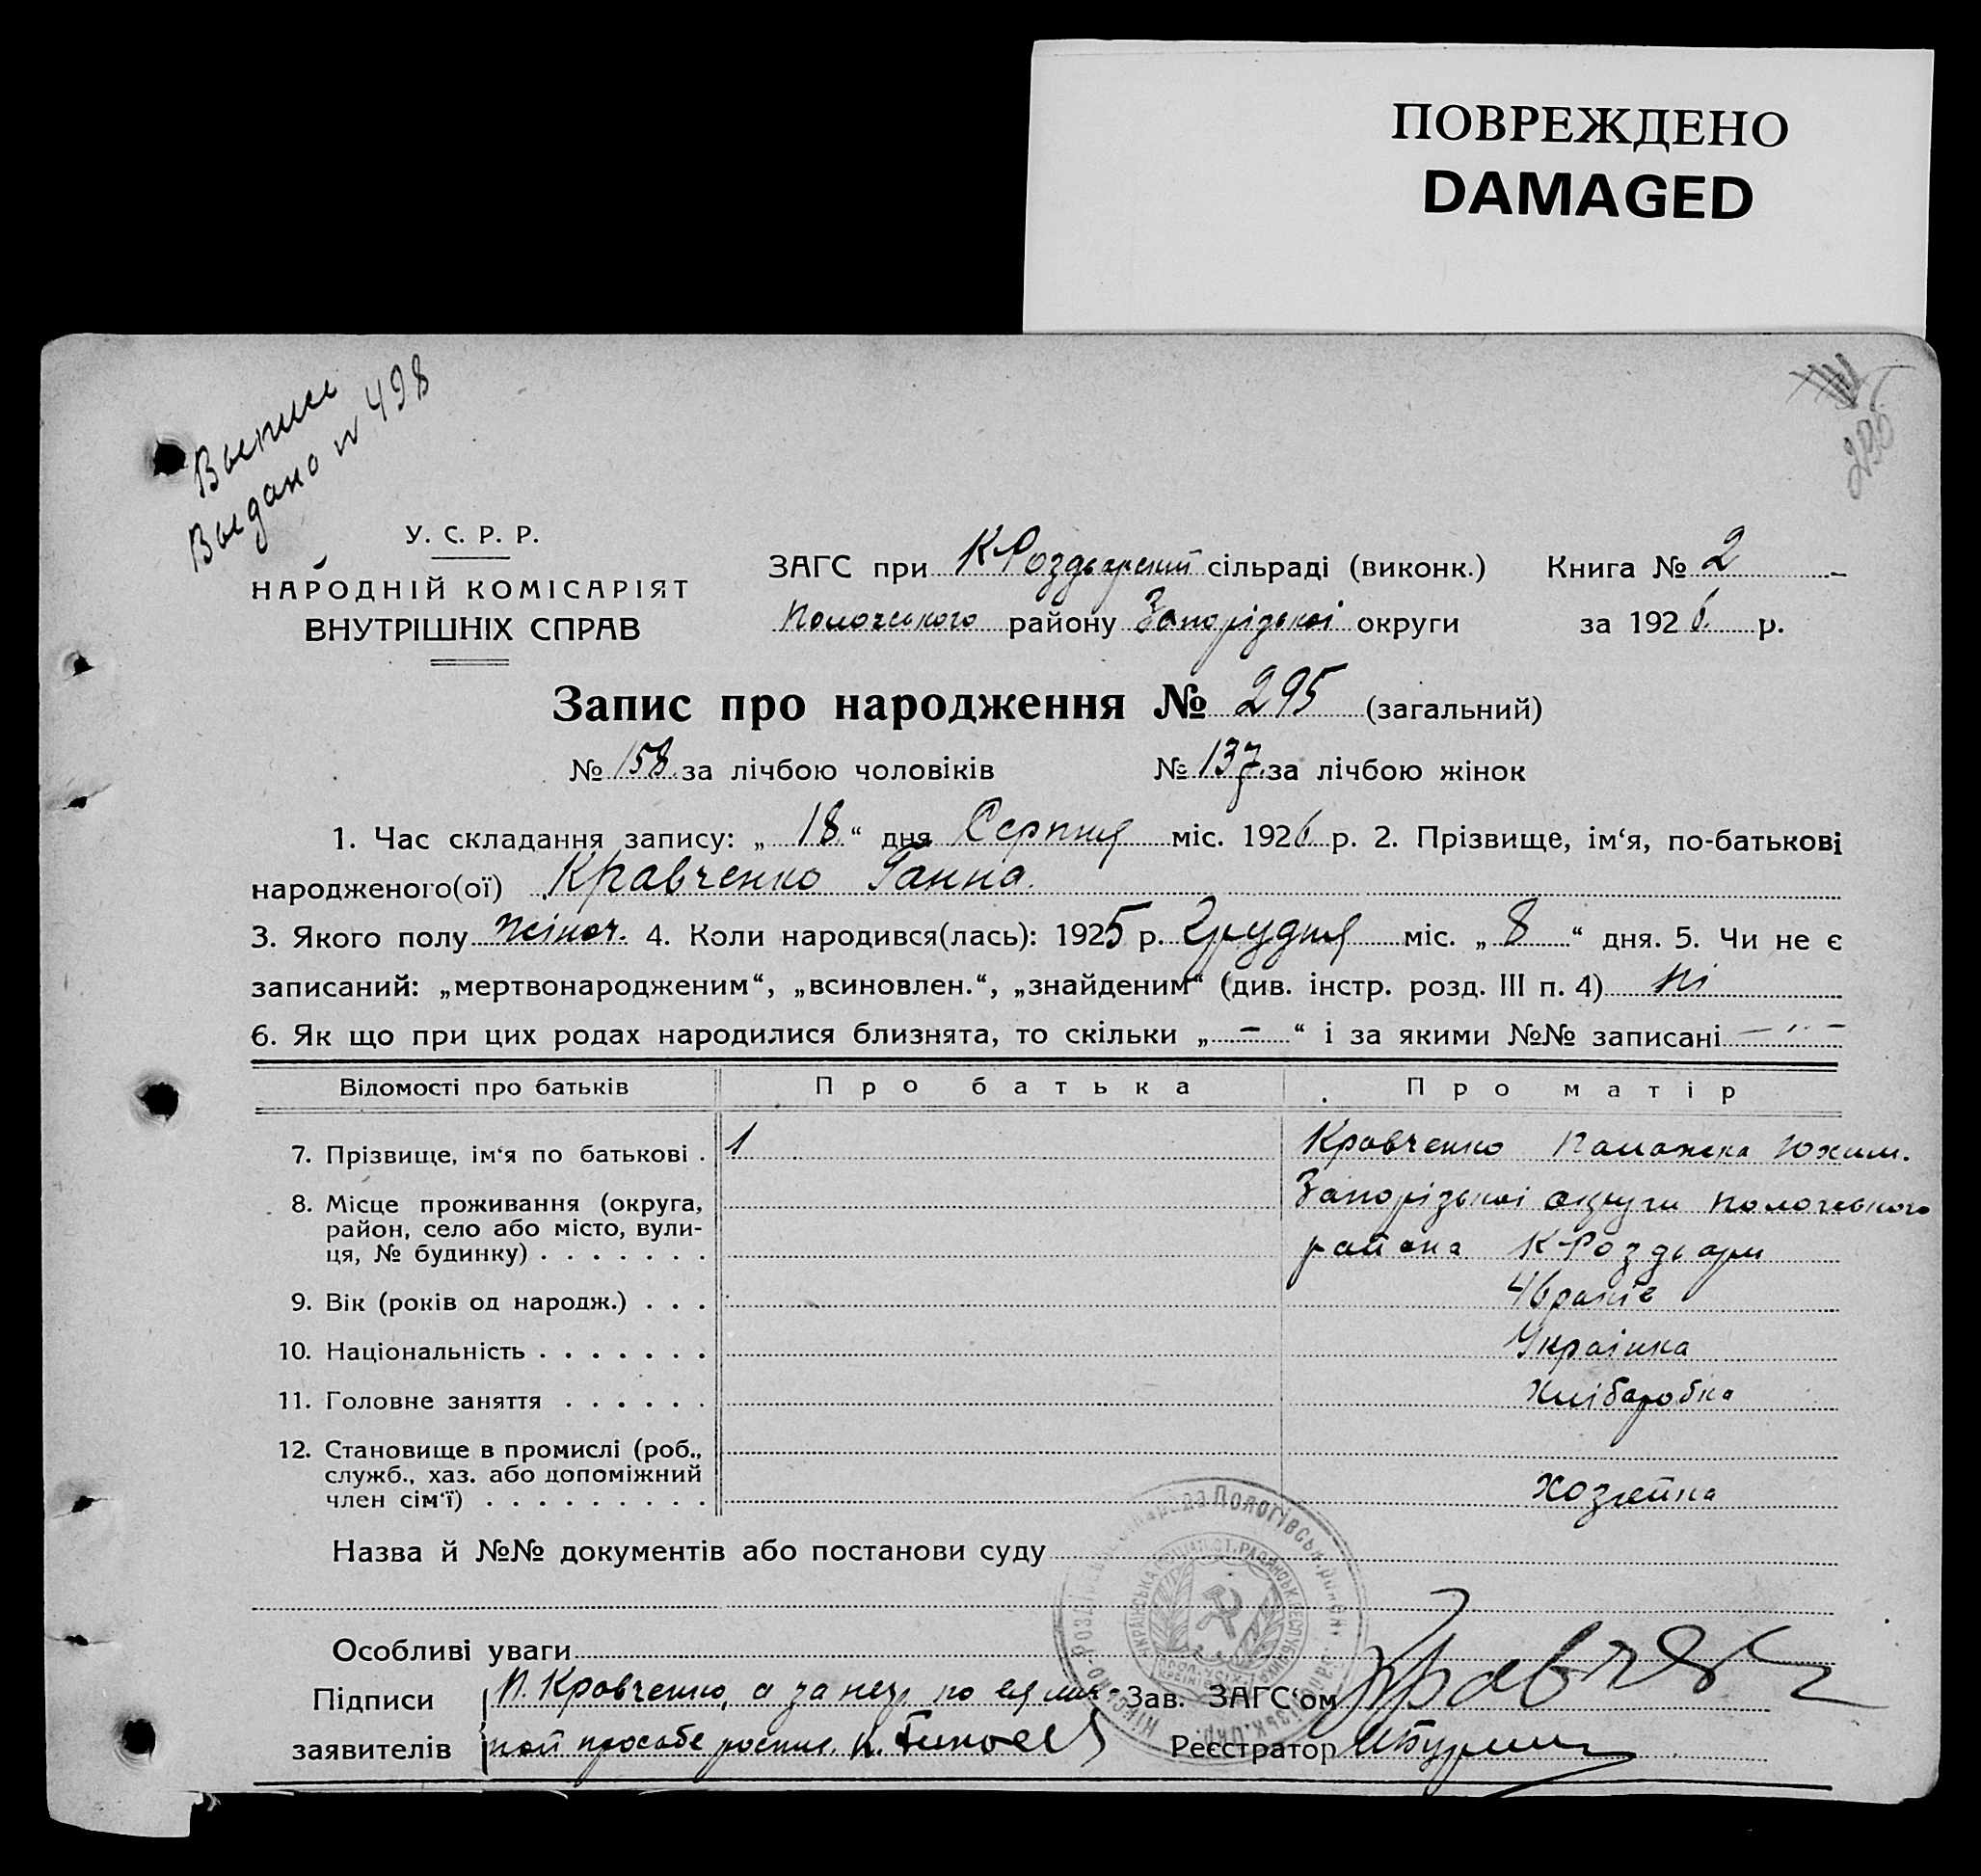 ПОВРЕЖДЕНО
DAMAGED
Выпись
Выдано N 498
295
У. С. Р. Р.
НАРОДНІЙ КОМІСАРІЯТ
ВНУТРІШНІХ СПРАВ
ЗАГС при К-Роздорський сільраді (виконк.) Книга № 2
Пологського району Запорізької округи за 1926 р.
Запис про народження № 295 (загальний)
№ 158 за лічбою чоловіків № 137 за лічбою жінок
1. Час складання запису: „ 18 “ дня Серпня міс. 1926 р. 2. Прізвище, ім‘я, по-батькові
народженого(ої) Кравченко Ганна.
3. Якого полу жіноч. 4. Коли народився(лась): 1925 р. Грудня міс. „ 8 “ дня. 5. Чи не є
записаний: „мертвонародженим“, „всиновлен.“, „знайденим“ (див. інстр. розд. III п. 4) ні
6. Як що при цих родах народилися близнята, то скільки „ – “ і за якими №№ записані – „ –
Відомості про батьків Про батька Про матір
7. Прізвище, ім‘я по батькові . Кравченко Юхим.
8. Місце проживання (округа, Запорізької округи Пологевського
район, село або місто, вули-
ця, № будинку) . . . . . . . района К-Роздори
9. Вік (років од народж.) . . . 46 років
10. Національність . . . . . . . Українка
11. Головне заняття . . . . . . Хлібаробка
12. Становище в промислі (роб.,
служб., хаз. або допоміжний
член сім‘ї) . . . . . . . . . Хозяйка
Назва й №№ документів або постанови суду
Особливі уваги
Підписи П. Кравченко, а за нез. по ея лич- Зав. ЗАГС‘ом Кравчен
заявителів ной просьбе роспис. Реєстратор